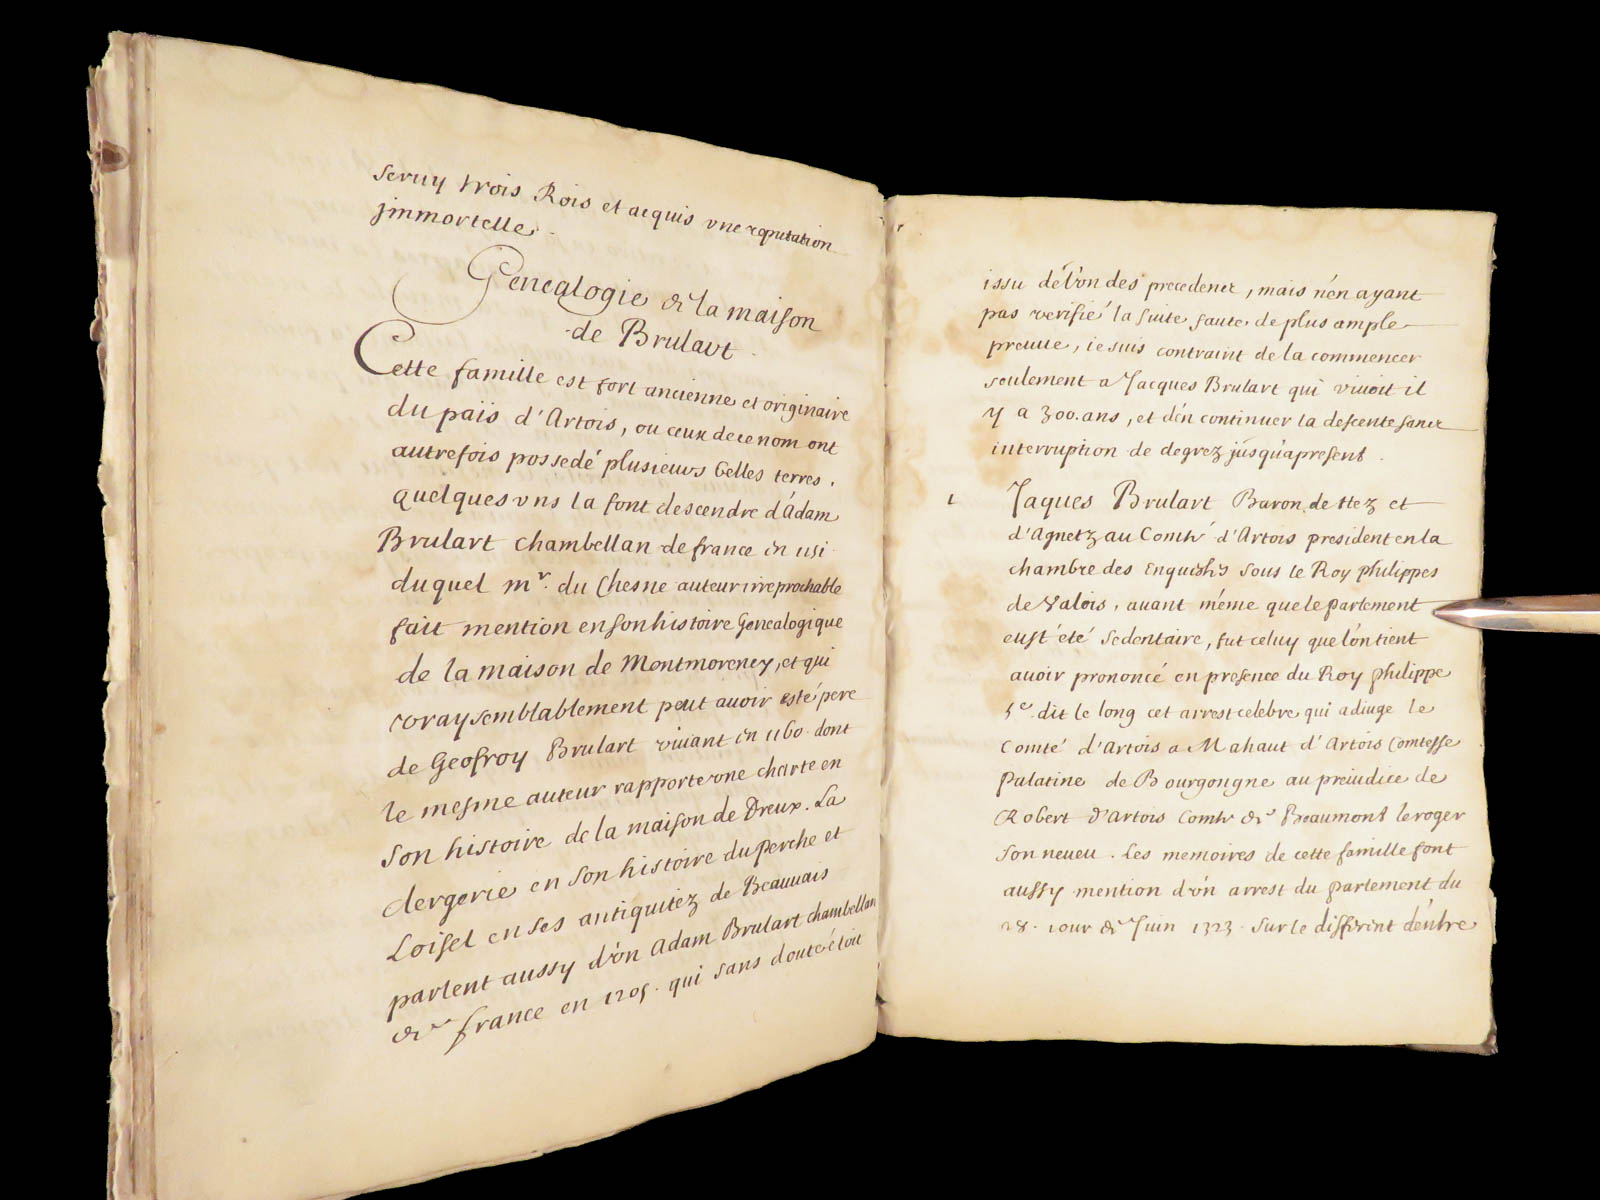 seruy trois Rois et acquis vne reputation
jmmortelle.
Genealogie de la maison
de Brulart
Cette famille est fort ancienne et originaire
du païs d'Artois, ou ceux de ce nom ont
autrefois possedé plusieurs belles terres.
quelques vns la font descendre d'Adam
Brulart chambellan de france en 1151
duquel mr. du Chesne auteur irreprochable
fait mention en son histoire Genealogique
de la maison de Montmorency, et qui
vraysemblablement peut auoir esté pere
de Geofroy Brulart viuant en 1160. dont
le mesme auteur rapporte vne charte en
son histoire de la maison de Dreux. La
clergerie en son histoire du perche et
Loisel en ses antiquitez de Beauuais
parlent aussy d'vn Adam Brulart chambellan
de france en 1205. qui sans doute étoit
issu de l'vn des precedenz, mais n'en ayant
pas verifié la suite faute de plus ample
preuue, ie suis contraint de la commencer
seulement a Jacques Brulart qui viuoit il
y a 300. ans, et d'en continuer la descente sans
interruption de degrez jusqu'apresent.
1 Jaques Brulart Baron de Hez et
d'Agnetz au Comté d'Artois president en la
chambre des Enquestes sous le Roy philippes
de Valois, auant méme que le parlement
eust été sedentaire, fut celuy que l'on tient
auoir prononcé en presence du Roy philippe
5e. dit le long cet arrest celebre qui adiuge le
Comté d'Artois a Mahaut d'Artois Comtesse
Palatine de Bourgongne au preiudice de
Robert d'Artois Comte de Beaumont le roger
son neueu. Les memoires de cette famille font
aussy mention d'vn arrest du parlement du
28. iour de Juin 1323. sur le different d'entre